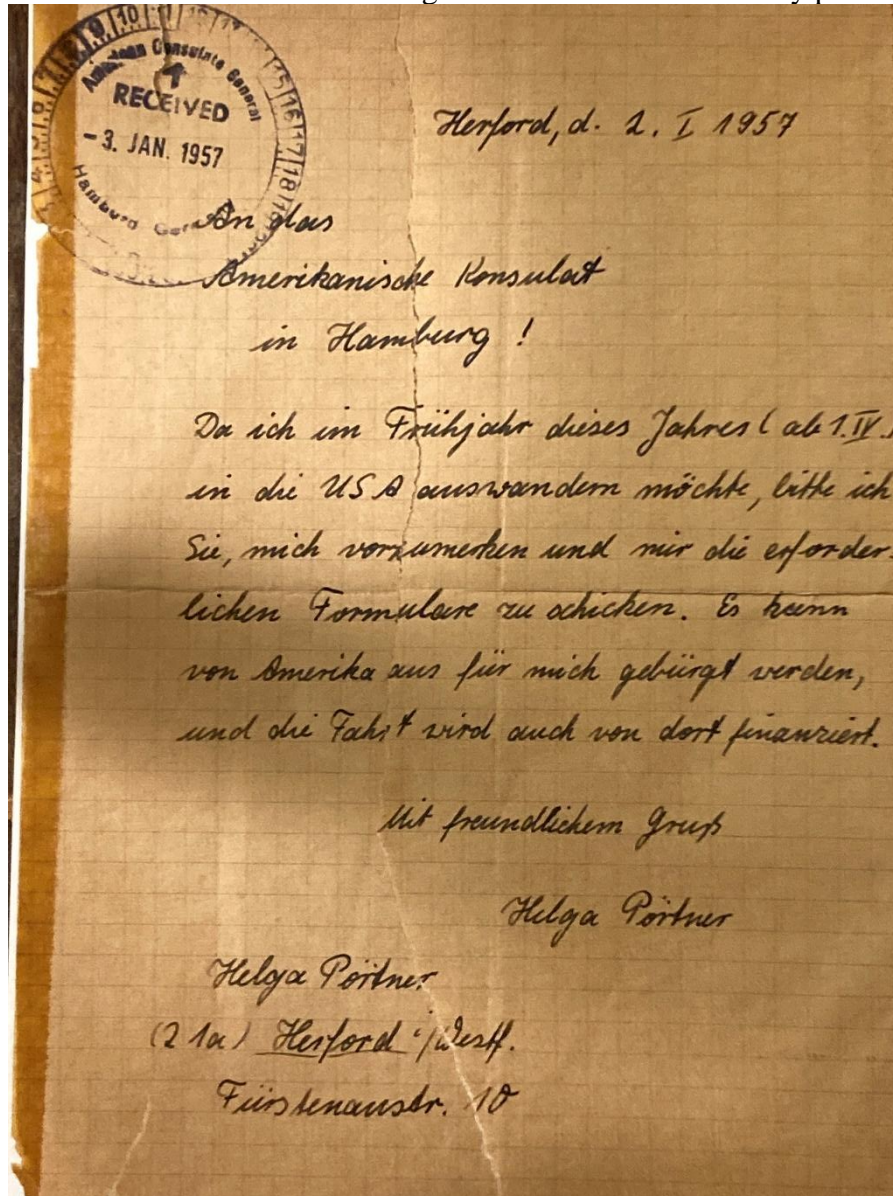 American Consulate General
RECEIVED
-3. JAN. 1957
Hamburg Germany
Herford, d. 2. I 1957
An das
Amerikanische Konsulat
in Hamburg !
Da ich im Frühjahr dieses Jahres ( ab 1. IV.
in die USA auswandern möchte, bitte ich
Sie, mich vorzumerken und mir die erforder-
lichen Formulare zu schicken. Es kann
von Amerika aus für mich gebürgt werden,
und die Fahrt wird auch von dort finanziert.
Mit freundlichem Gruß
Helga Pörtner
Helga Pörtner
(21a) Herford i/Westf.
Fürstenaustr. 10